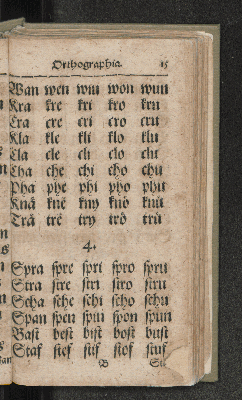 Orthographia. 15
Wan wen win won wun
Kra kre kri kro kru
Cra cre cri cro cru
Kla kle kli klo klu
Cla cle cli clo clu
Cha che chi cho chu
Pha phe phi pho phu
Knä knë kny knö knü
Trä trë try trö trü
4.
Spra spre spri spro spru
Stra stre stri stro stru
Scha sche schi scho schu
Span spen spin spon spun
Bast best bist bost bust
Staf stef stif stof stuf
B Sta